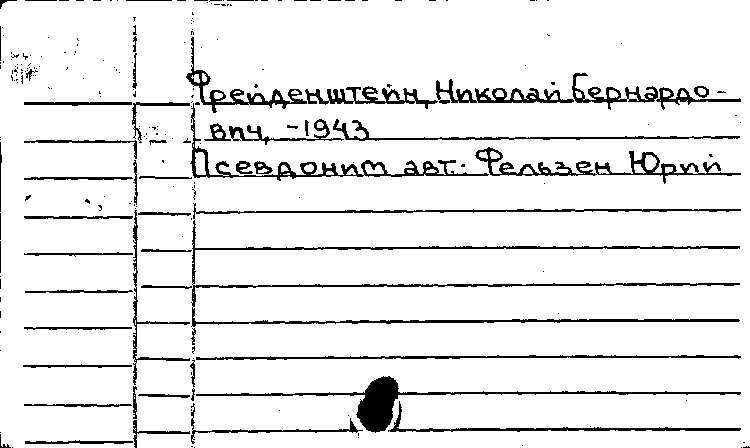 Фрейденштейн, Николай Бернардо-
вич, -1943
Псевдоним авт.: Фельзен Юрий